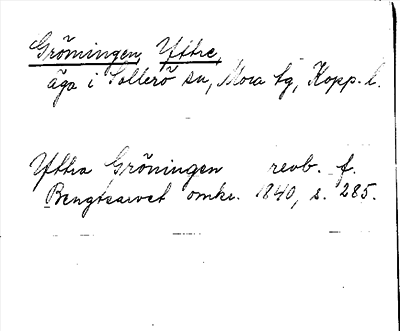 Gröningen, Yttre,
äga i Sollerö sn, Mora tg, Kopp. l.
Yttra Gröningen revb. f.
Bengtsarvet omkr. 1840, s. 285.